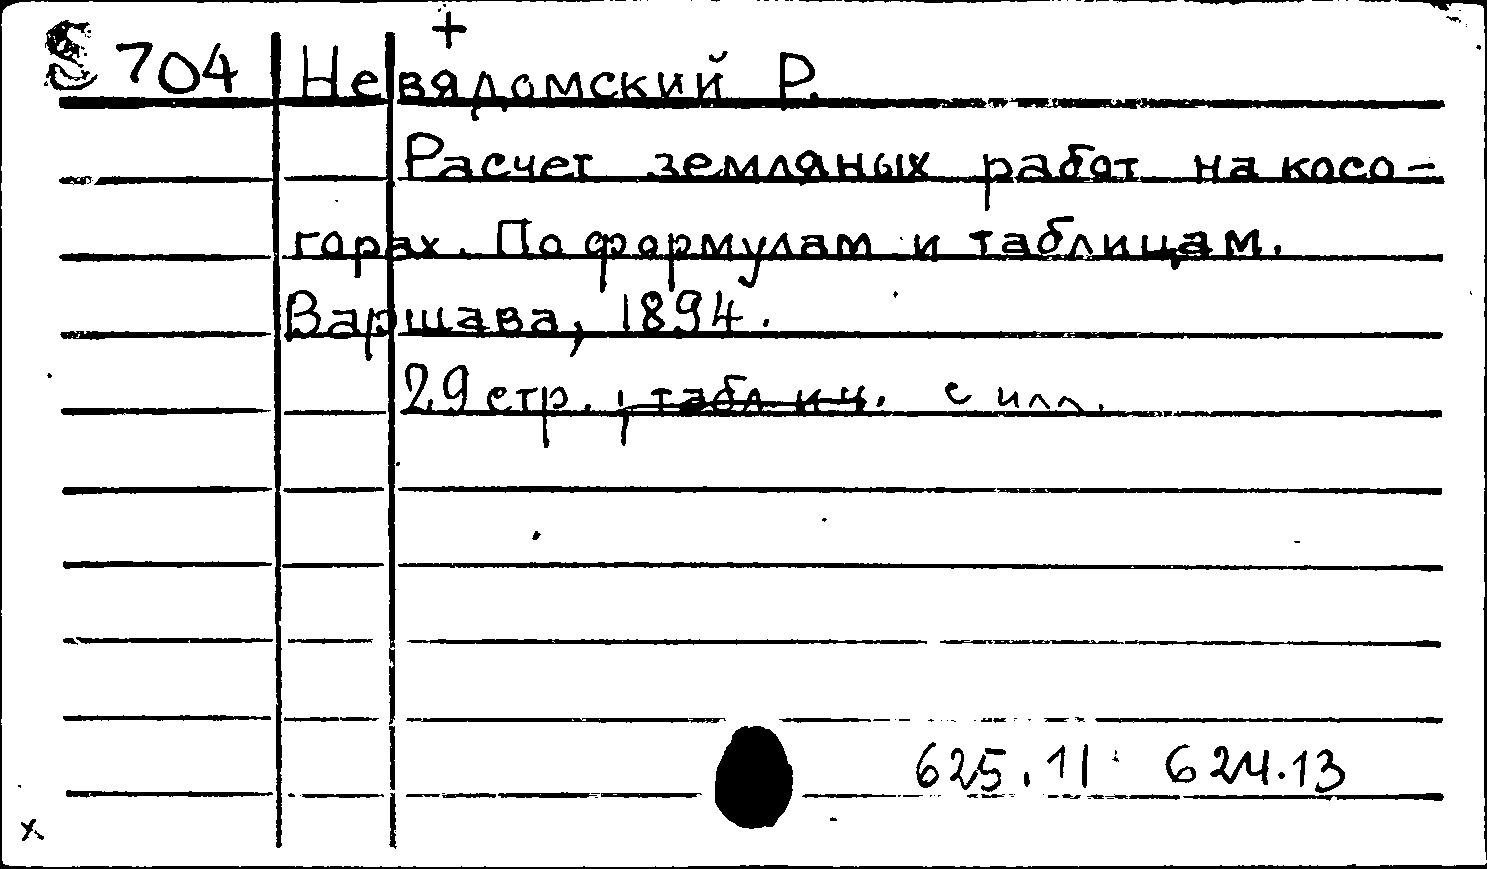 +
S 704 Невядомский Р.
Расчет земляных работ на косо-
горах. По формулам и таблицам.
Варшава, 1894.
29 стр. с илл.
625.11 624.13
x